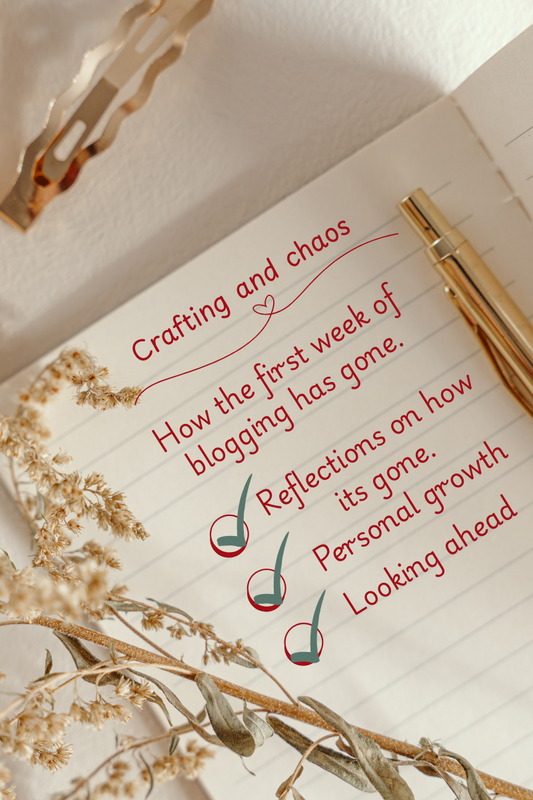 Crafting and chaos
How the first week of
blogging has gone.
Reflections on how
its gone.
Personal growth
Looking ahead